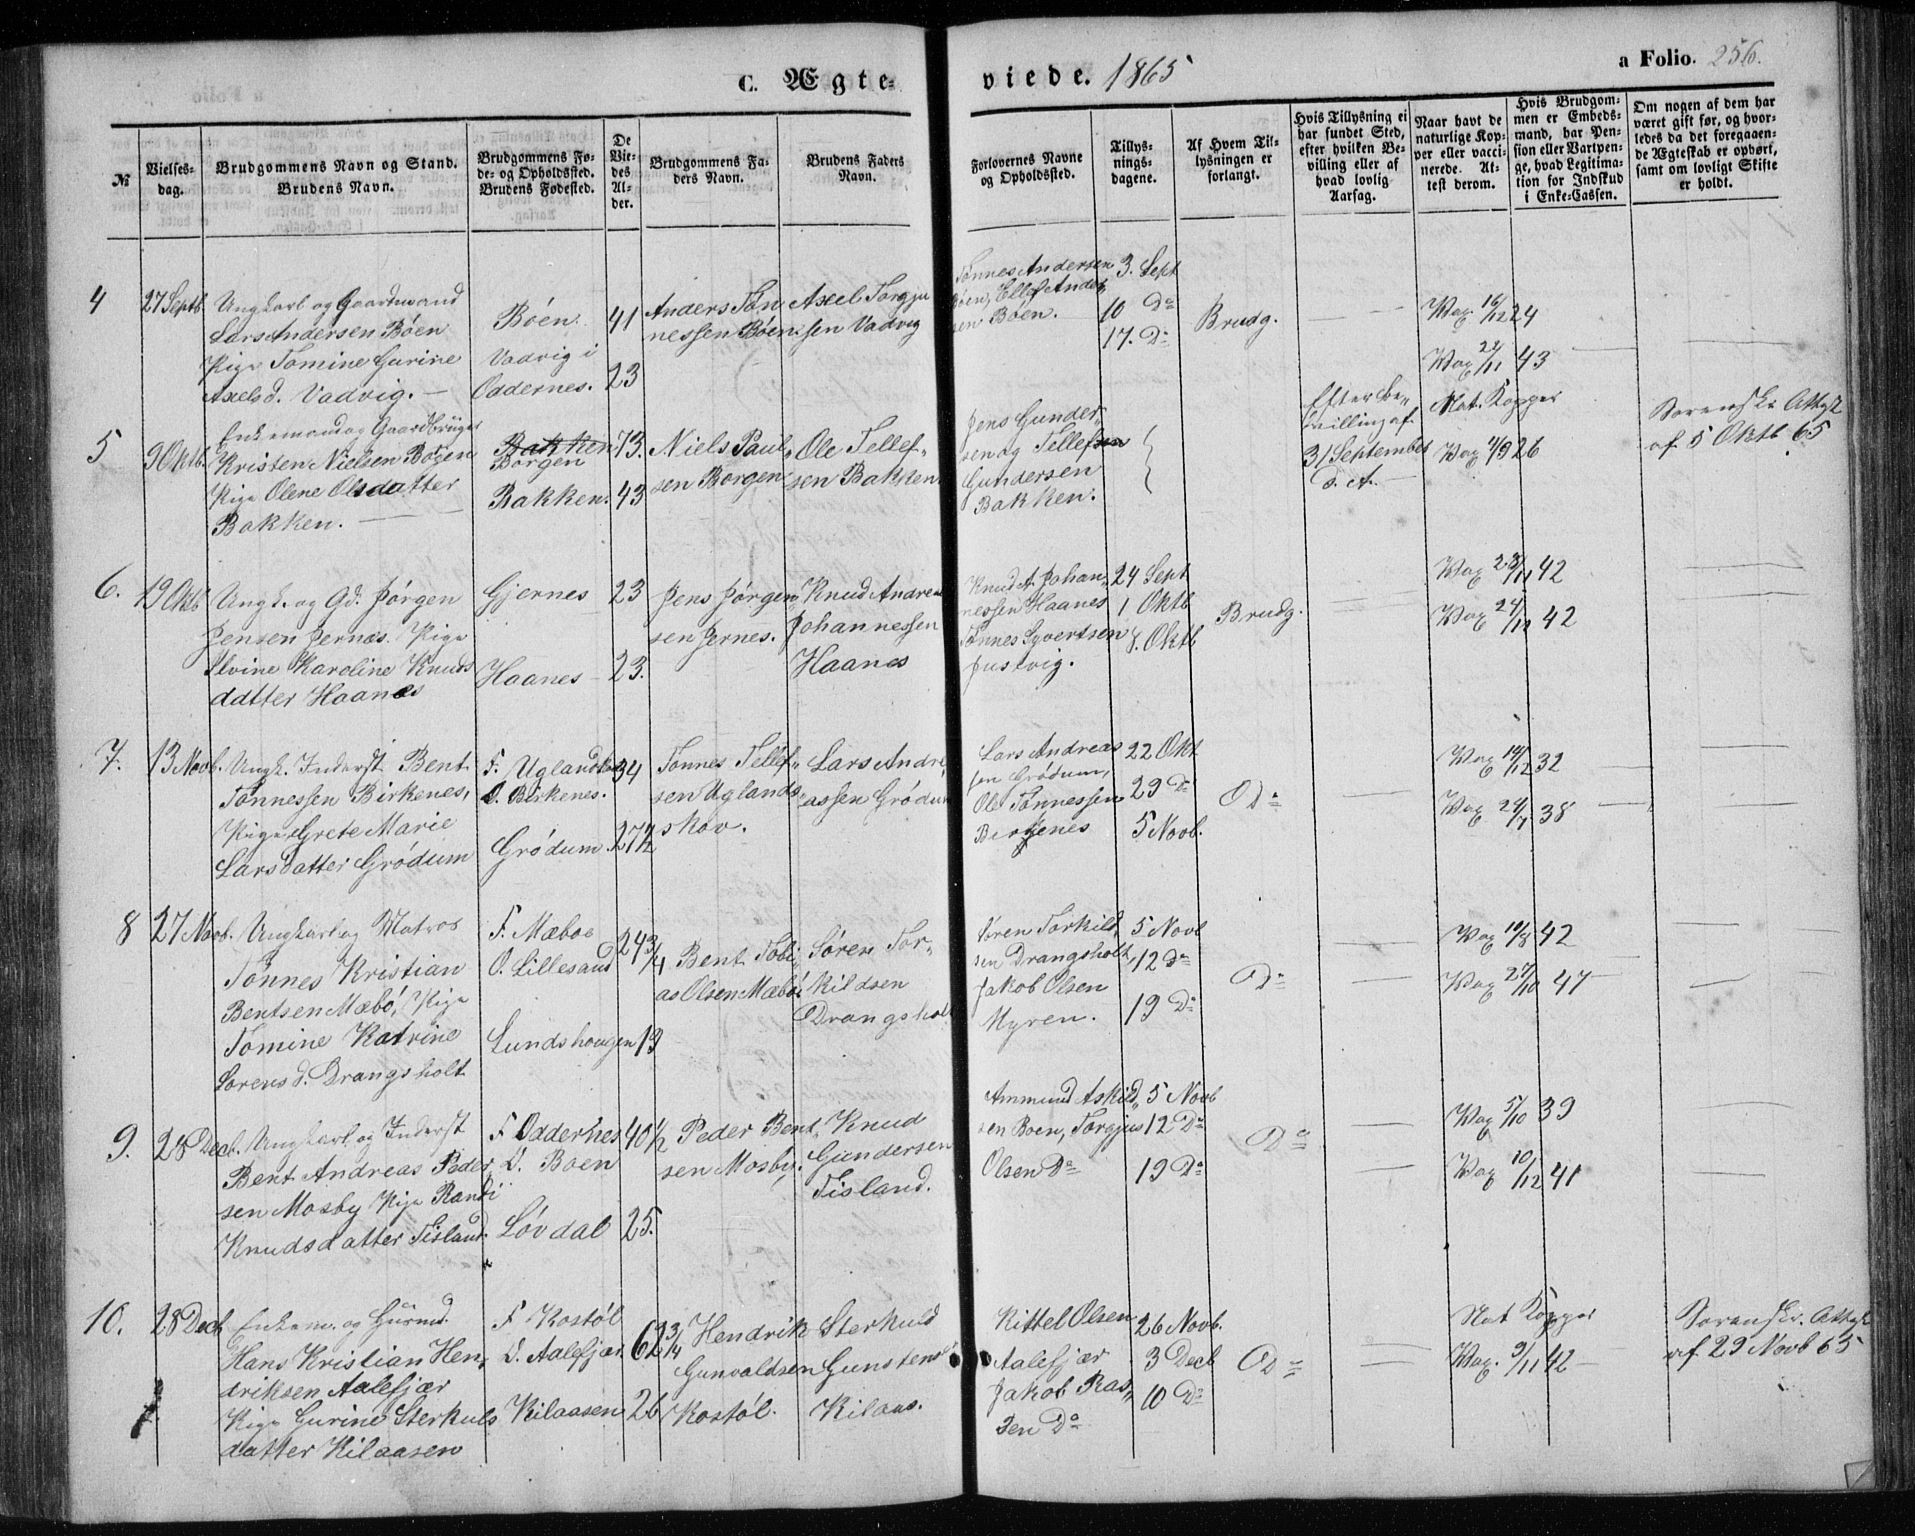 C. Ægte-
viede. 1865
a Folio. 256.
№
Vielses-
dag.
Brudgommens Navn og Stand.
Brudens Navn.
Brudgommens Fø-
de- og Opholdssted.
Brudens Fødested.
De
Vie-
des
Al-
der.
Brudgommens Fa-
ders Navn.
Brudens Faders
Navn.
Forlovernes Navne
og Opholdssted.
Tillys-
nings-
dagene.
Af Hvem Til-
lysningen er
forlangt.
Hvis Tillysning ei
har fundet Sted,
efter hvilken Be-
villing eller af
hvad lovlig
Aarsag.
Naar havt de
naturlige Kop-
per eller vacci-
nerede. At-
test derom.
Hvis Brudgom-
men er Embeds-
mand, har Pen-
sion eller Vartpen-
ge, hvad Legitima-
tion for Indskud
i Enke-Cassen.
Om nogen af dem har
været gift før, og hvor-
ledes da det foregaaen-
de Ægteskab er ophørt,
samt om lovligt Skifte
er holdt.
4
27 Septb.
Ungkarl og Gaardmand
Lars Andersen Bóen
Pige Tomine Gurine
Axelsd. Vadvig. —
Bóen
Vadvig i
Oddernes.
41
23
Anders Tón
nessen Bóen
Axel Torgju
sen Vadvig
Tónnes Andersen
Bóen, Ellef Ander,
sen Bóen.
3. Sept
10 Do
17. Do
Brudg.
Vax 16/12 24
Vax 22/11 43
5
9 Oktb.
Enkemand og Gaardbrüger
Kristen Nielsen Borgen
Pige Olene Olsdatter
Bakken. —
Bakken
Borgen
Bakken.
73.
43
Niels Paul„
sen Borgen
Ole Tellef„
sen Bakken
Jens Gunder„
sen og Tellef
Gundersen
Bakken.
Efter Be„
villing af
31 September
d. A.
Nat. Kopper
Vax 4/9 26
Sorenskr. Attest
af 5 Oktb 65
6.
19 Oktb
Ungk. og Gd. Jórgen
Jensen Jernæs. Pige
Elvine Karoline Knuds
datter Haanæs
Gjernes
Haanes
23
23.
Jens Jórgen„
sen Jernes.
Knud Andreas
Johannessen
Haanes
Knud A. Johan„
nessen Haanes
Tónnes Syvertsen
Justvig.
24 Sept
1 Oktb
8. Oktb
Brudg.
Vax 23/11 42
Vax 24/12 42
7.
13 Novb.
Ungk. Inderst Bent
Tónnessen Birkenes,
Pige Grete Marie
Larsdatter Gródum
F. Uglandsk
O. Birkenes.
Gródum
34
27½
Tónnes Tellef„
sen Uglands
skov.
Lars Andre„
assen Gródum
Lars Andreas
sen Gródum,
Ole Tónnessen
Birkenes
22 Okt
29 Do
5 Novb.
Do
Vax 14/12 32
Vax 24/7 38
8
27 Novb.
Ungkarl og Matros
Tónnes Kristian
Bentsen Mæbó, Pige
Tomine Katrine
Sorensd. Drangsholt
F. Mæboe
O. Lillesand
Lundshougen
24¾
19
Bent Tobi„
as Olsen Mæbó
Sóren Tor„
kildsen
Drangsholt
Sóren Torkild„
sen Drangsholt,
Jakob Olsen
Myren.
5 Novb
12 Do
19 Do
Do
Vax 19/8 42
Vax 27/10 47
9.
28 Decb.
Ungkarl og Inderst
Bent Andreas Peder„
sen Mosby Pige Randi
Knudsdatter Tisland.
F Oddernes
O. Boen
Lóvdal
40½
25.
Peder Bent„
sen Mosby,
Knud
Gundersen
Tisland.
Ammund Askild„
sen Boen, Torgjus
Olsen Do
5 Novb
12 Do
19 Do
Do
Vax 5/10 39
Vax 10/12 41
10.
28 Decb
Enkem. og Gürmd.
Hans Kristian Hen„
driksen Aalefjær
Pige Gurine Sterkuls
datter Kilaasen
F Kostól
O. Aalefjær
Kilaasen
62¾
26
Hendrik
Gunvaldsen
Kostól.
Sterkuld
Gunstens
Kilaas.
Kittel Olsen
Aalefjær
Jakob Ras„
sen Do
26 Novb.
3 Decb
10 Do
Do
Nat Kopper
Vax. 9/11 42
Sorenskr. Attest
af 29 Novb 65